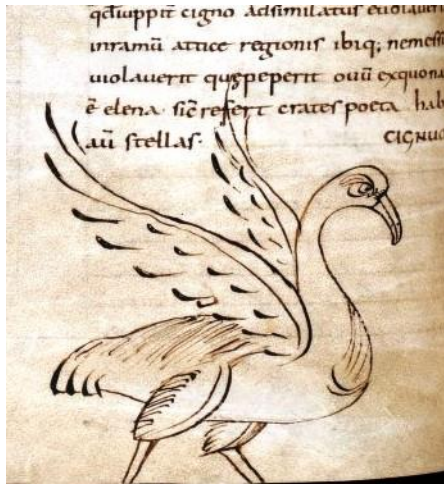 qđiuppit̄ cigno adsimilatus euolauerit
inramū attice regionis ibiq; nemesim
uiolauerit quępeperit ouū exquona
ē elena sic̄ refert crates poeta hab
aū stellas· CIGNUS